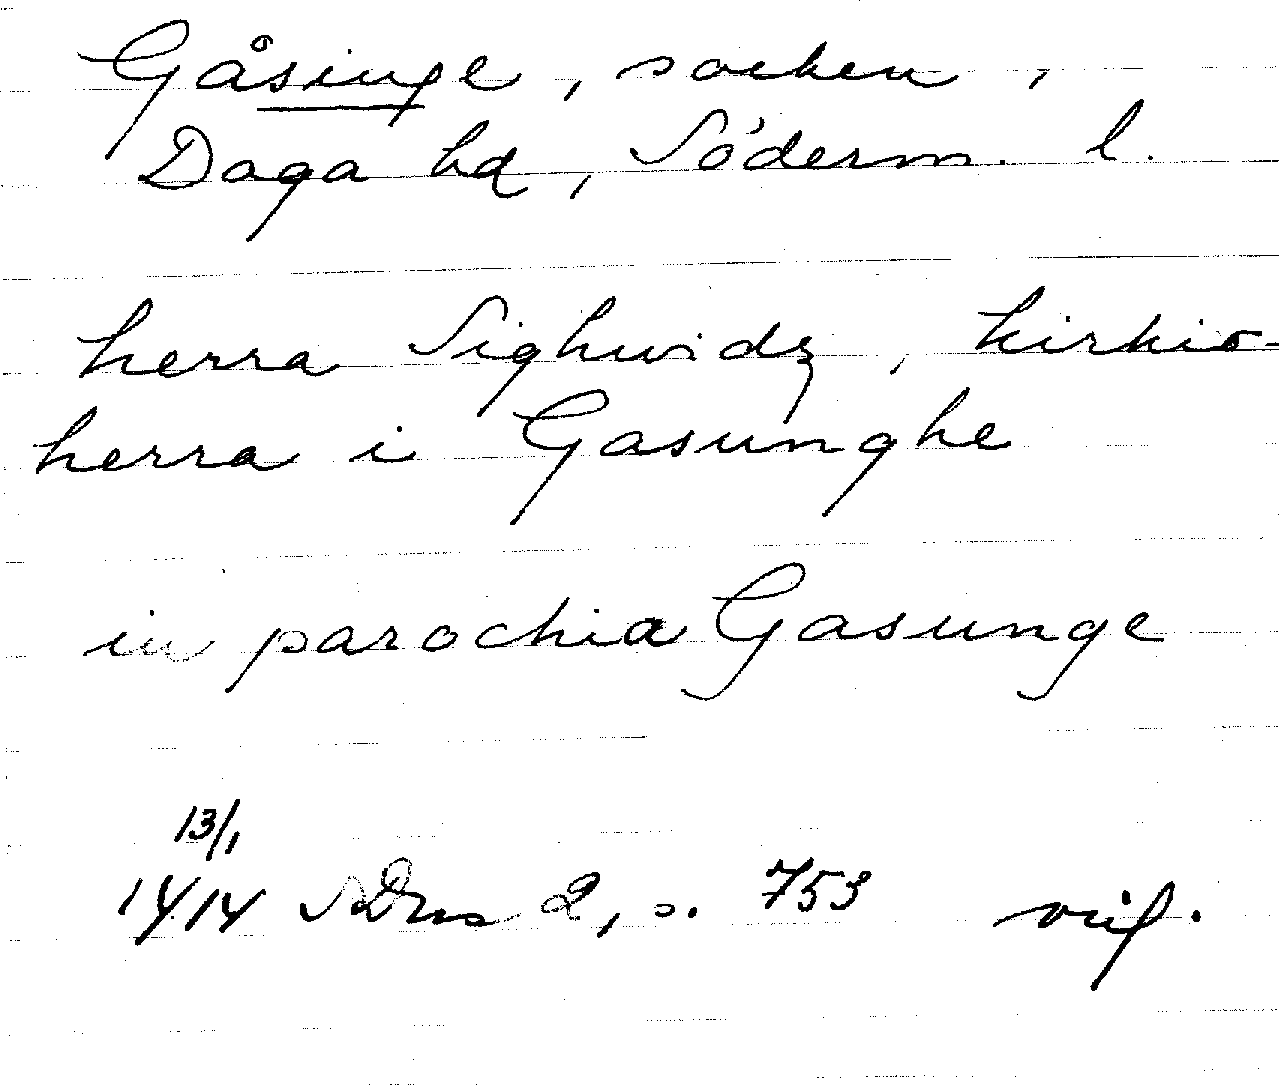 Gåsinge, socken,
Daga hd, Söderm. l.
herra Sighwidz, kirkio-
herra i Gasunghe
in parochia Gasunge
13/1
1414 SDns 2, s. 753 orig.